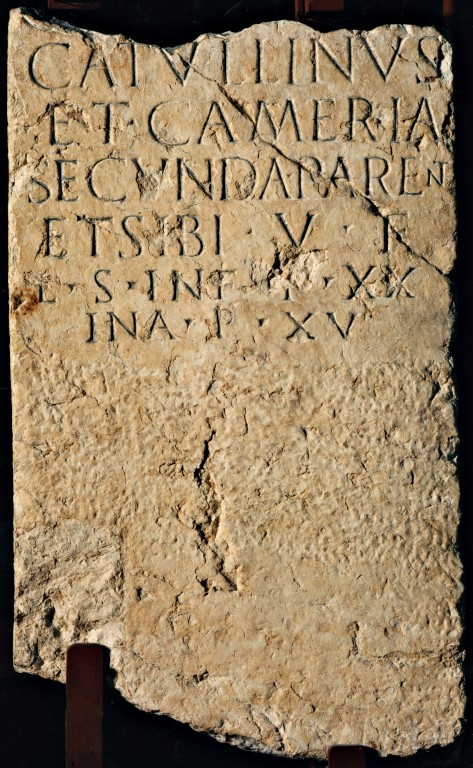 CATVLLINVS
ET · CAMERIA
SECVNDA PAREN
ET SIBI · V · F
L · S · IN F · P · XX
IN A · P · XV